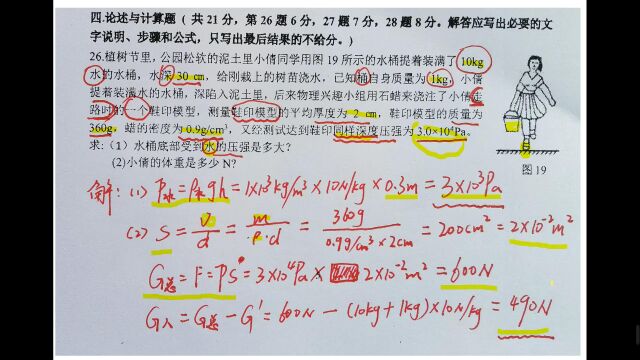 四.论述与计算题 ( 共 21 分，第 26 题 6 分，27 题 7 分，28 题 8 分。解答应写出必要的文
字说明、步骤和公式，只写出最后结果的不给分。)
26.植树节里，公园松软的泥土里小倩同学用图 19 所示的水桶提着装满了 10kg
水的水桶，水深 30 cm，给刚栽上的树苗浇水，已知桶自身质量为 1kg，小倩
提着装满水的水桶，深陷入泥土里，后来物理兴趣小组用石蜡来浇注了小倩走
路时的一个鞋印模型，测量鞋印模型的平均厚度为 2 cm，鞋印模型的质量为
360g，蜡的密度为 0.9g/cm³，又经测试达到鞋印同样深度压强为 3.0×10⁴Pa。
求:（1）水桶底部受到水的压强是多大?
(2)小倩的体重是多少 N?
图 19
解: (1) P水 = ρ水gh = 1×10³kg/m³×10N/kg×0.3m = 3×10³Pa
(2) S = V/d = m/ρ·d = 360g/0.9g/cm³×2cm = 200cm² = 2×10⁻²m²
G总 = F = PS = 3×10⁴Pa × 2×10⁻²m² = 600N
G人 = G总 − G' = 600N − (10kg+1kg)×10N/kg = 490N